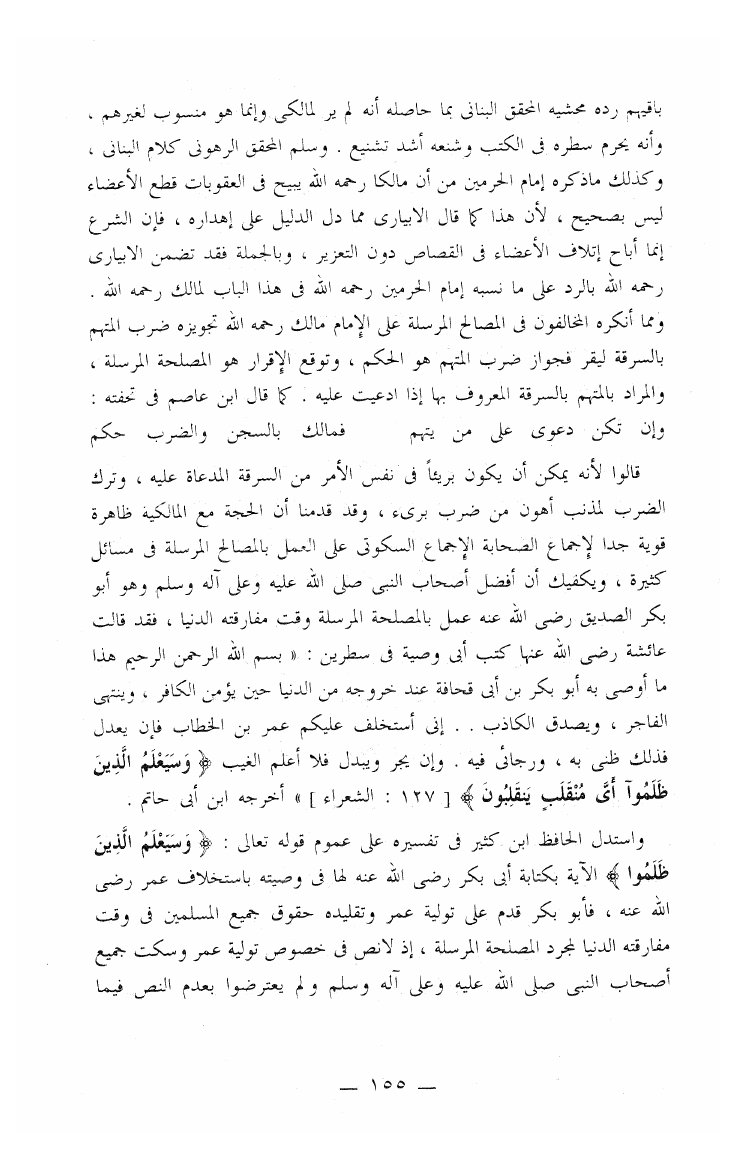 باقيهم رده محشيه المحقق البنانى بما حاصله أنه لم ير لمالكى وإنما هو منسوب لغيرهم ،
وأنه يحرم سطره فى الكتب وشنعه أشد تشنيع . وسلم المحقق الرهونى كلام البنانى ،
وكذلك ماذكره إمام الحرمين من أن مالكا رحمه الله يبيح فى العقوبات قطع الأعضاء
ليس بصحيح ، لأن هذا كما قال الابيارى مما دل الدليل على إهداره ، فإن الشرع
إنما أباح إتلاف الأعضاء فى القصاص دون التعزير ، وبالجملة فقد تضمن الابيارى
رحمه الله بالرد على ما نسبه إمام الحرمين رحمه الله فى هذا الباب لمالك رحمه الله .
ومما أنكره المخالفون فى المصالح المرسلة على الإمام مالك رحمه الله تجويزه ضرب المتهم
بالسرقة ليقر فجواز ضرب المتهم هو الحكم ، وتوقع الإقرار هو المصلحة المرسلة ،
والمراد بالمتهم بالسرقة المعروف بها إذا ادعيت عليه . كما قال ابن عاصم فى تحفته :
وإن تكن دعوى على من يتهم فمالك بالسجن والضرب حكم
قالوا لأنه يمكن أن يكون بريئاً فى نفس الأمر من السرقة المدعاة عليه ، وترك
الضرب لمذنب أهون من ضرب برىء ، وقد قدمنا أن الحجة مع المالكية ظاهرة
قوية جدا لإجماع الصحابة الإجماع السكوتى على العمل بالمصالح المرسلة فى مسائل
كثيرة ، ويكفيك أن أفضل أصحاب النبى صلى الله عليه وعلى آله وسلم وهو أبو
بكر الصديق رضى الله عنه عمل بالمصلحة المرسلة وقت مفارقته الدنيا ، فقد قالت
عائشة رضى الله عنها كتب أبى وصية فى سطرين : « بسم الله الرحمن الرحيم هذا
ما أوصى به أبو بكر بن أبى قحافة عند خروجه من الدنيا حين يؤمن الكافر ، وينتهى
الفاجر ، ويصدق الكاذب . . إنى أستخلف عليكم عمر بن الخطاب فإن يعدل
فذلك ظنى به ، ورجائى فيه . وإن يجر ويبدل فلا أعلم الغيب ﴿ وَسَيَعْلَمُ الَّذِينَ
ظَلَمُوآ أَىَّ مُنْقَلَبٍ يَنقَلِبُونَ ﴾ [ ١٢٧ : الشعراء ] » أخرجه ابن أبى حاتم .
واستدل الحافظ ابن كثير فى تفسيره على عموم قوله تعالى : ﴿ وَسَيَعْلَمُ الَّذِينَ
ظَلَمُوا ﴾ الآية بكتابة أبى بكر رضى الله عنه لها فى وصيته باستخلاف عمر رضى
الله عنه ، فأبو بكر قدم على تولية عمر وتقليده حقوق جميع المسلمين فى وقت
مفارقته الدنيا لمجرد المصلحة المرسلة ، إذ لانص فى خصوص تولية عمر وسكت جميع
أصحاب النبى صلى الله عليه وعلى آله وسلم ولم يعترضوا بعدم النص فيما
— ١٥٥ —